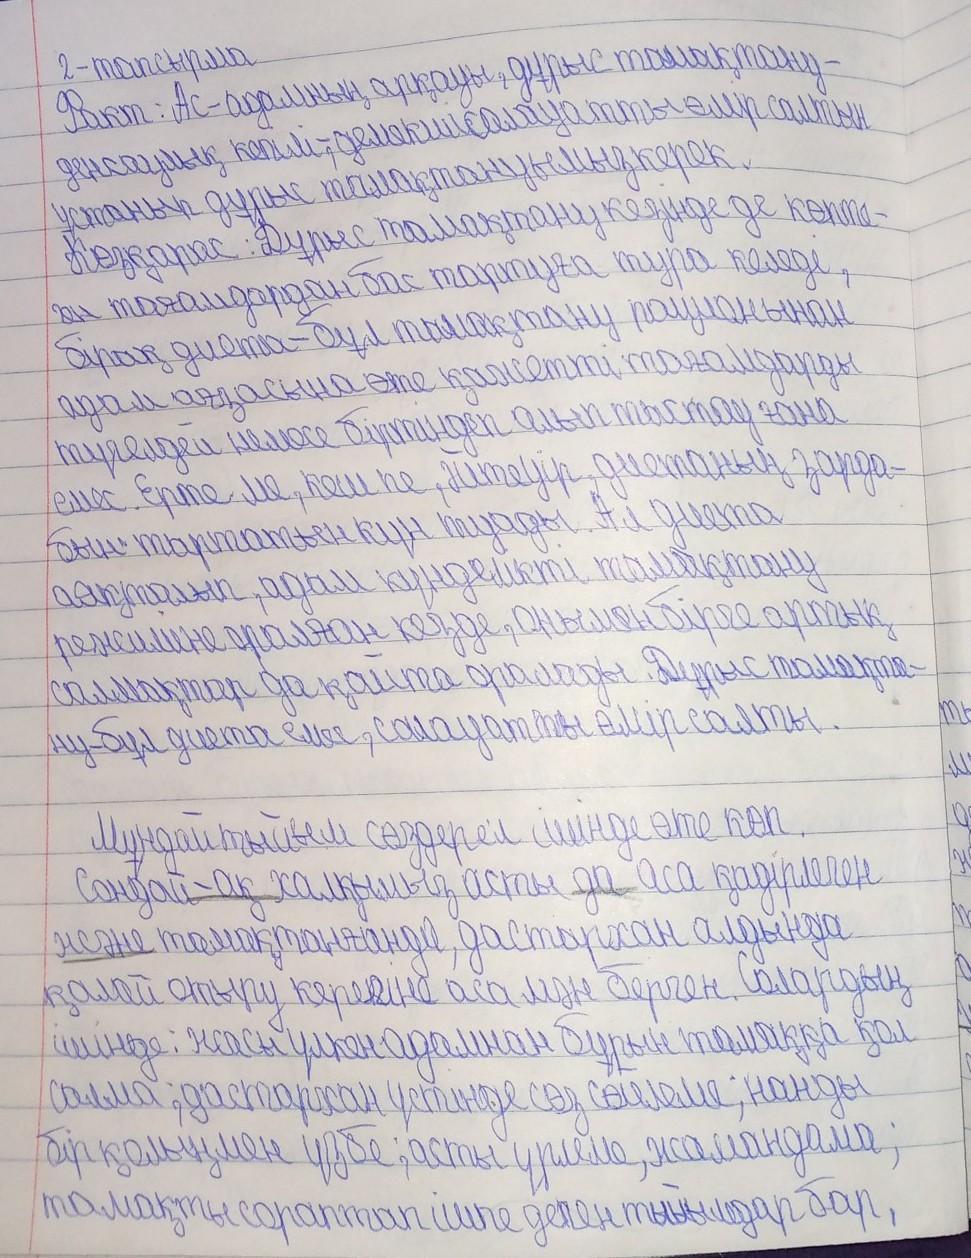 2-тапсырма
Факт: Ас-адамның арқауы, дұрыс тамақтану-
денсаулық кепілі, демекші салауатты өмір салтын
ұстанып дұрыс тамақтануымыз керек.
Көзқарас: Дұрыс тамақтану кезінде де көпте-
ген тағамдардан бас тартуға тура келеді,
бірақ диета-бұл тамақтану рационынан
адам ағзасына өте қажетті тағамдарды
түгелдей немесе біртіндеп алып тыстау ғана
емес. Ерте ме, кеш пе, әйтеуір, диетаның зарда-
бын тартатын күн туады. Ал диета
аяқталып, адам күнделікті тамақтану
режиміне оралған кезде, онымен бірге артық
салмақтар да қайта оралады. Дұрыс тамақта-
ну-бұл диета емес, салауатты өмір салты.
Мұндай тыйым сөздер ел ішінде өте көп.
Сондай-ақ халқымыз асты да аса қадірлеген
және тамақтанғанда, дастархан алдында
қалай отыру керегіне аса мән берген. Солардың
ішінде: жасы үлкен адамнан бұрын тамаққа қол
салма; дастархан үстінде сөз сөйлеме; нанды
бір қолыңмен үзбе; асты үрлеме, жамандама;
тамақты сораптап ішпе деген тыйымдар бар,